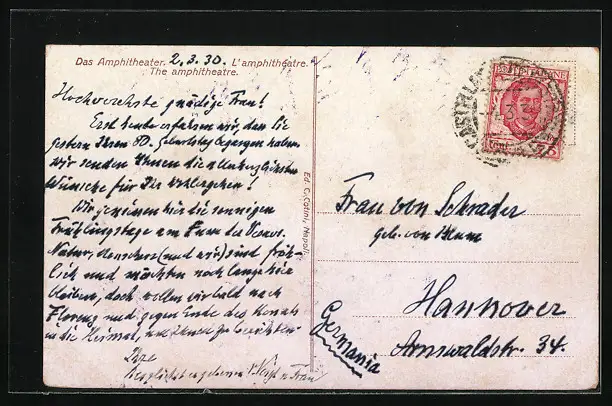 Das Amphitheater. 2.3.30. L'amphithéatre.
The amphitheatre.
Hochverehrte gnädige Frau!
Erst heute erfahren wir, dass Sie
gestern Ihren 80. Geburtstag begangen haben.
Wir senden Ihnen die allerherzlichsten
Wünsche für Ihr Wohlergehen!
Wir geniessen hier die sonnigen
Frühlingstage am Fusse des Vesuvs.
Natur, Menschen (und wir) sind fröh-
lich und möchten noch lange hier
bleiben, doch wollen wir bald nach
Florenz und gegen Ende des Monats
in die Heimat, um Ihnen zu berichten.
Ihre
ergebenen u. Frau
Ed. C. Cotini, Napoli
POSTE ITALIANE
75
CASTELLA
Frau von Schrader
geb. von Blum
Hannover
Arnswaldstr. 34.
Germania